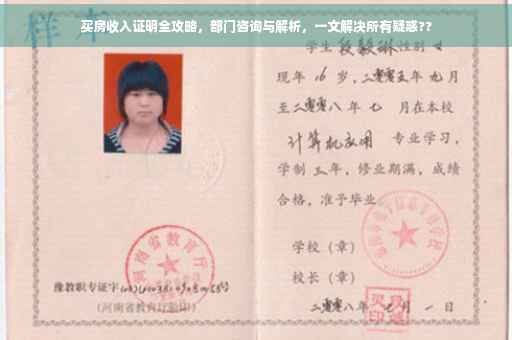 买房收入证明全攻略，部门咨询与解析，一文解决所有疑惑??
样本
学生段毅琳性别女
现年16岁，二零零五年九月
至二零零八年七月在本校
计算机应用 专业学习，
学制三年，修业期满，成绩
合格，准予毕业
学校（章）
校长（章）
二零零八年七月一日
河南省教育厅
豫教职专证字
（河南省教育厅验印）